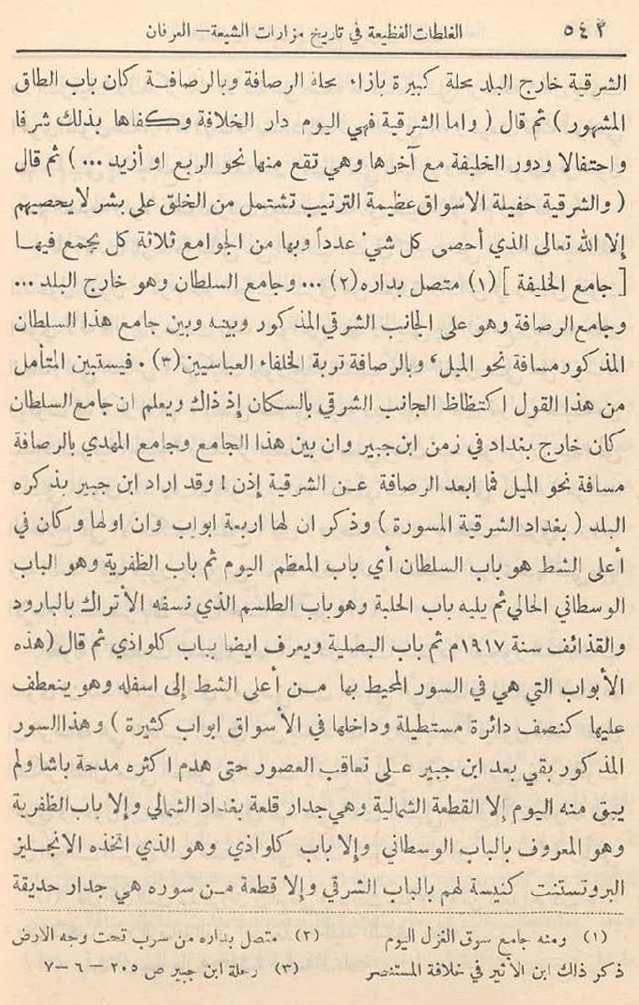 ٥٤٢ الغلطات الفظيعة في تاريخ مزارات الشيعة – العرفان
الشرقية خارج البلد محلة كبيرة بازاء محلة الرصافة وبالرصافة كان باب الطاق
المشهور ) ثم قال ( واما الشرقية فهي اليوم دار الخلافة وكفاها بذلك شرفا
واحتفالا ودور الخليفة مع آخرها وهي تقع منها نحو الربع او أزيد ... ) ثم قال
( والشرقية حفيلة الاسواق عظيمة الترتيب تشتمل من الخلق على بشر لا يحصيهم
إلا الله تعالى الذي أحصى كل شيء عدداً وبها من الجوامع ثلاثة كل يجمع فيها
[ جامع الخليفة ] (١) متصل بداره (٢) ... وجامع السلطان وهو خارج البلد ...
وجامع الرصافة وهو على الجانب الشرقي المذكور وبينه وبين جامع هذا السلطان
المذكور مسافة نحو الميل ، وبالرصافة تربة الخلفاء العباسيين (٣) . فيستبين المتأمل
من هذا القول اكتظاظ الجانب الشرقي بالسكان إذ ذاك ويعلم ان جامع السلطان
كان خارج بغداد في زمن ابن جبير وان بين هذا الجامع وجامع المهدي بالرصافة
مسافة نحو الميل فما ابعد الرصافة عن الشرقية إذن ! وقد اراد ابن جبير بذكره
البلد ( بغداد الشرقية المسورة ) وذكر ان لها اربعة ابواب وان اولها وكان في
أعلى الشط هو باب السلطان أي باب المعظم اليوم ثم باب الظفرية وهو الباب
الوسطاني الحالي ثم يليه باب الحلبة وهو باب الطلسم الذي نسفه الأتراك بالبارود
والقذائف سنة ١٩١٧م ثم باب البصلية ويعرف ايضا بباب كلواذي ثم قال ( هذه
الأبواب التي هي في السور المحيط بها من أعلى الشط إلى اسفله وهو ينعطف
عليها كنصف دائرة مستطيلة وداخلها في الأسواق ابواب كثيرة ) وهذا السور
المذكور بقي بعد ابن جبير على تعاقب العصور حتى هدم اكثره مدحة باشا ولم
يبق منه اليوم إلا القطعة الشمالية وهي جدار قلعة بغداد الشمالي وإلا باب الظفرية
وهو المعروف بالباب الوسطاني وإلا باب كلواذي وهو الذي اتخذه الانجليز
البروتستنت كنيسة لهم بالباب الشرقي وإلا قطعة من سوره هي جدار حديقة
(١) ومنه جامع سوق الغزل اليوم (٢) متصل بداره من سرب تحت وجه الارض
ذكر ذلك ابن الأثير في خلافة المستنصر (٣) رحلة ابن جبير ص ٢٠٥ – ٦ – ٧